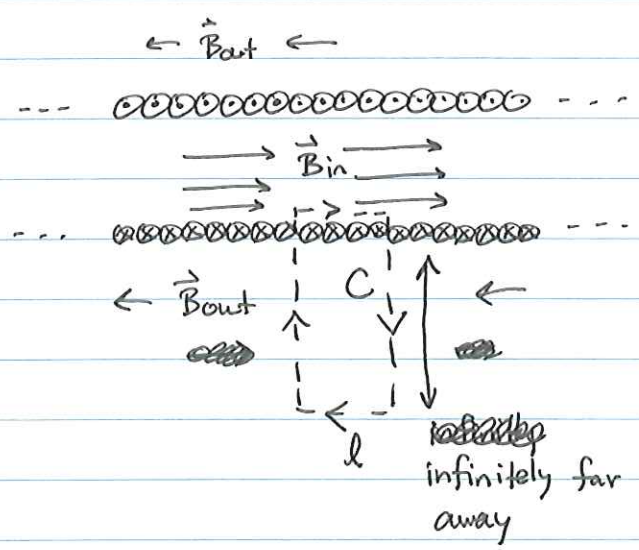 B⃗out
B⃗in
B⃗out
C
l
infinitely far
away